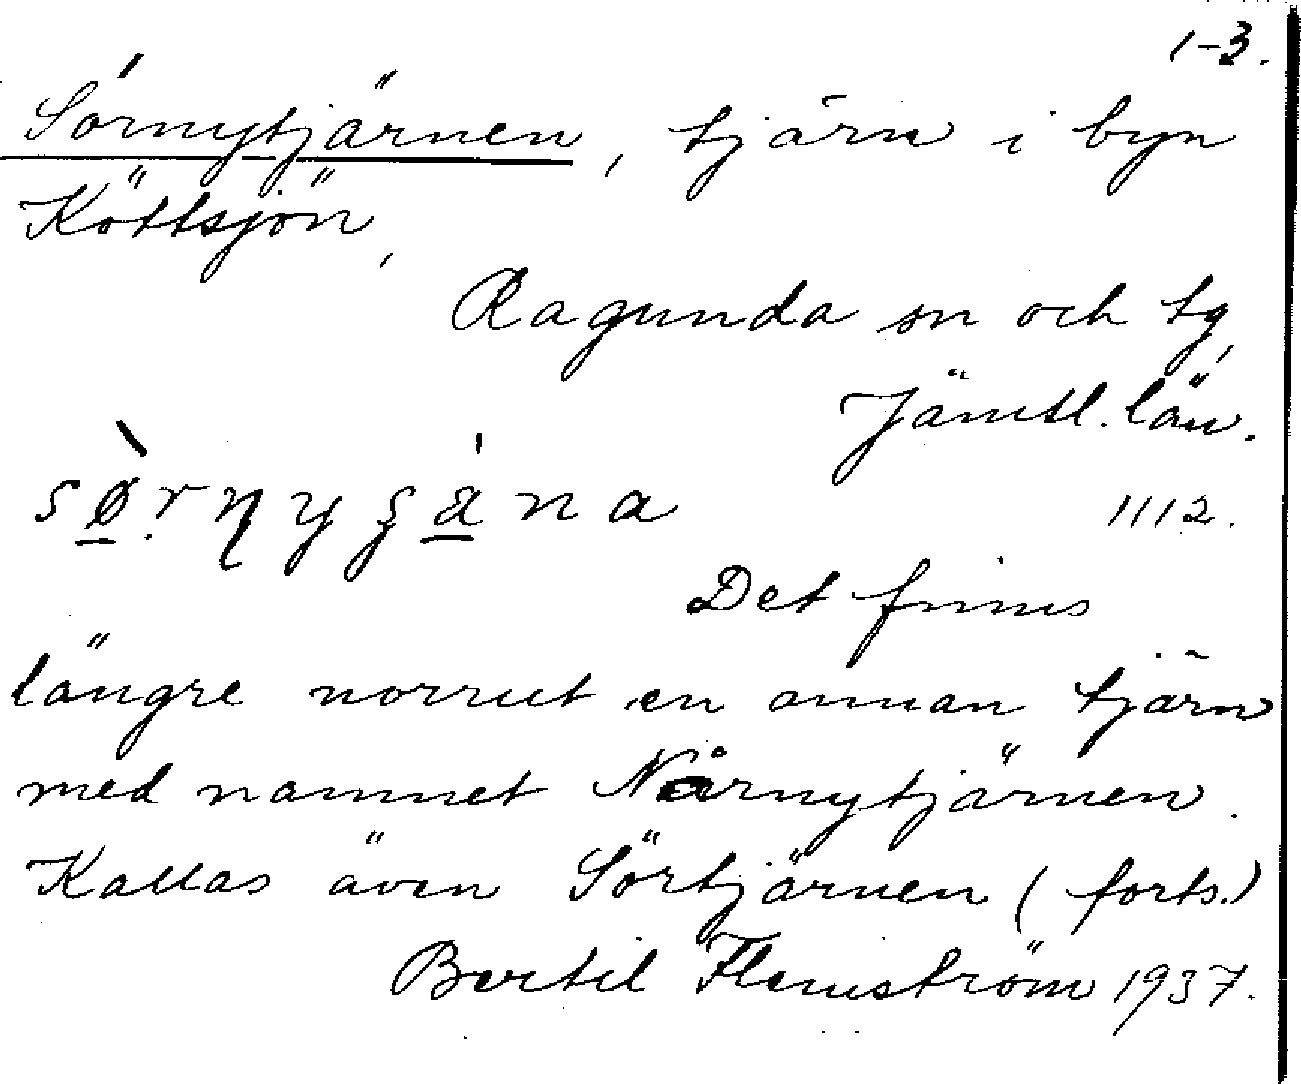 1-3.
Sörnytjärnen, tjärn i byn
Köttsjön,
Ragunda sn och tg,
Jämtl. län.
1112.
Det finns
längre norrut en annan tjärn
med namnet Nårnytjärnen.
Kallas även Sörtjärnen (forts.)
Bertil Flemström 1937.